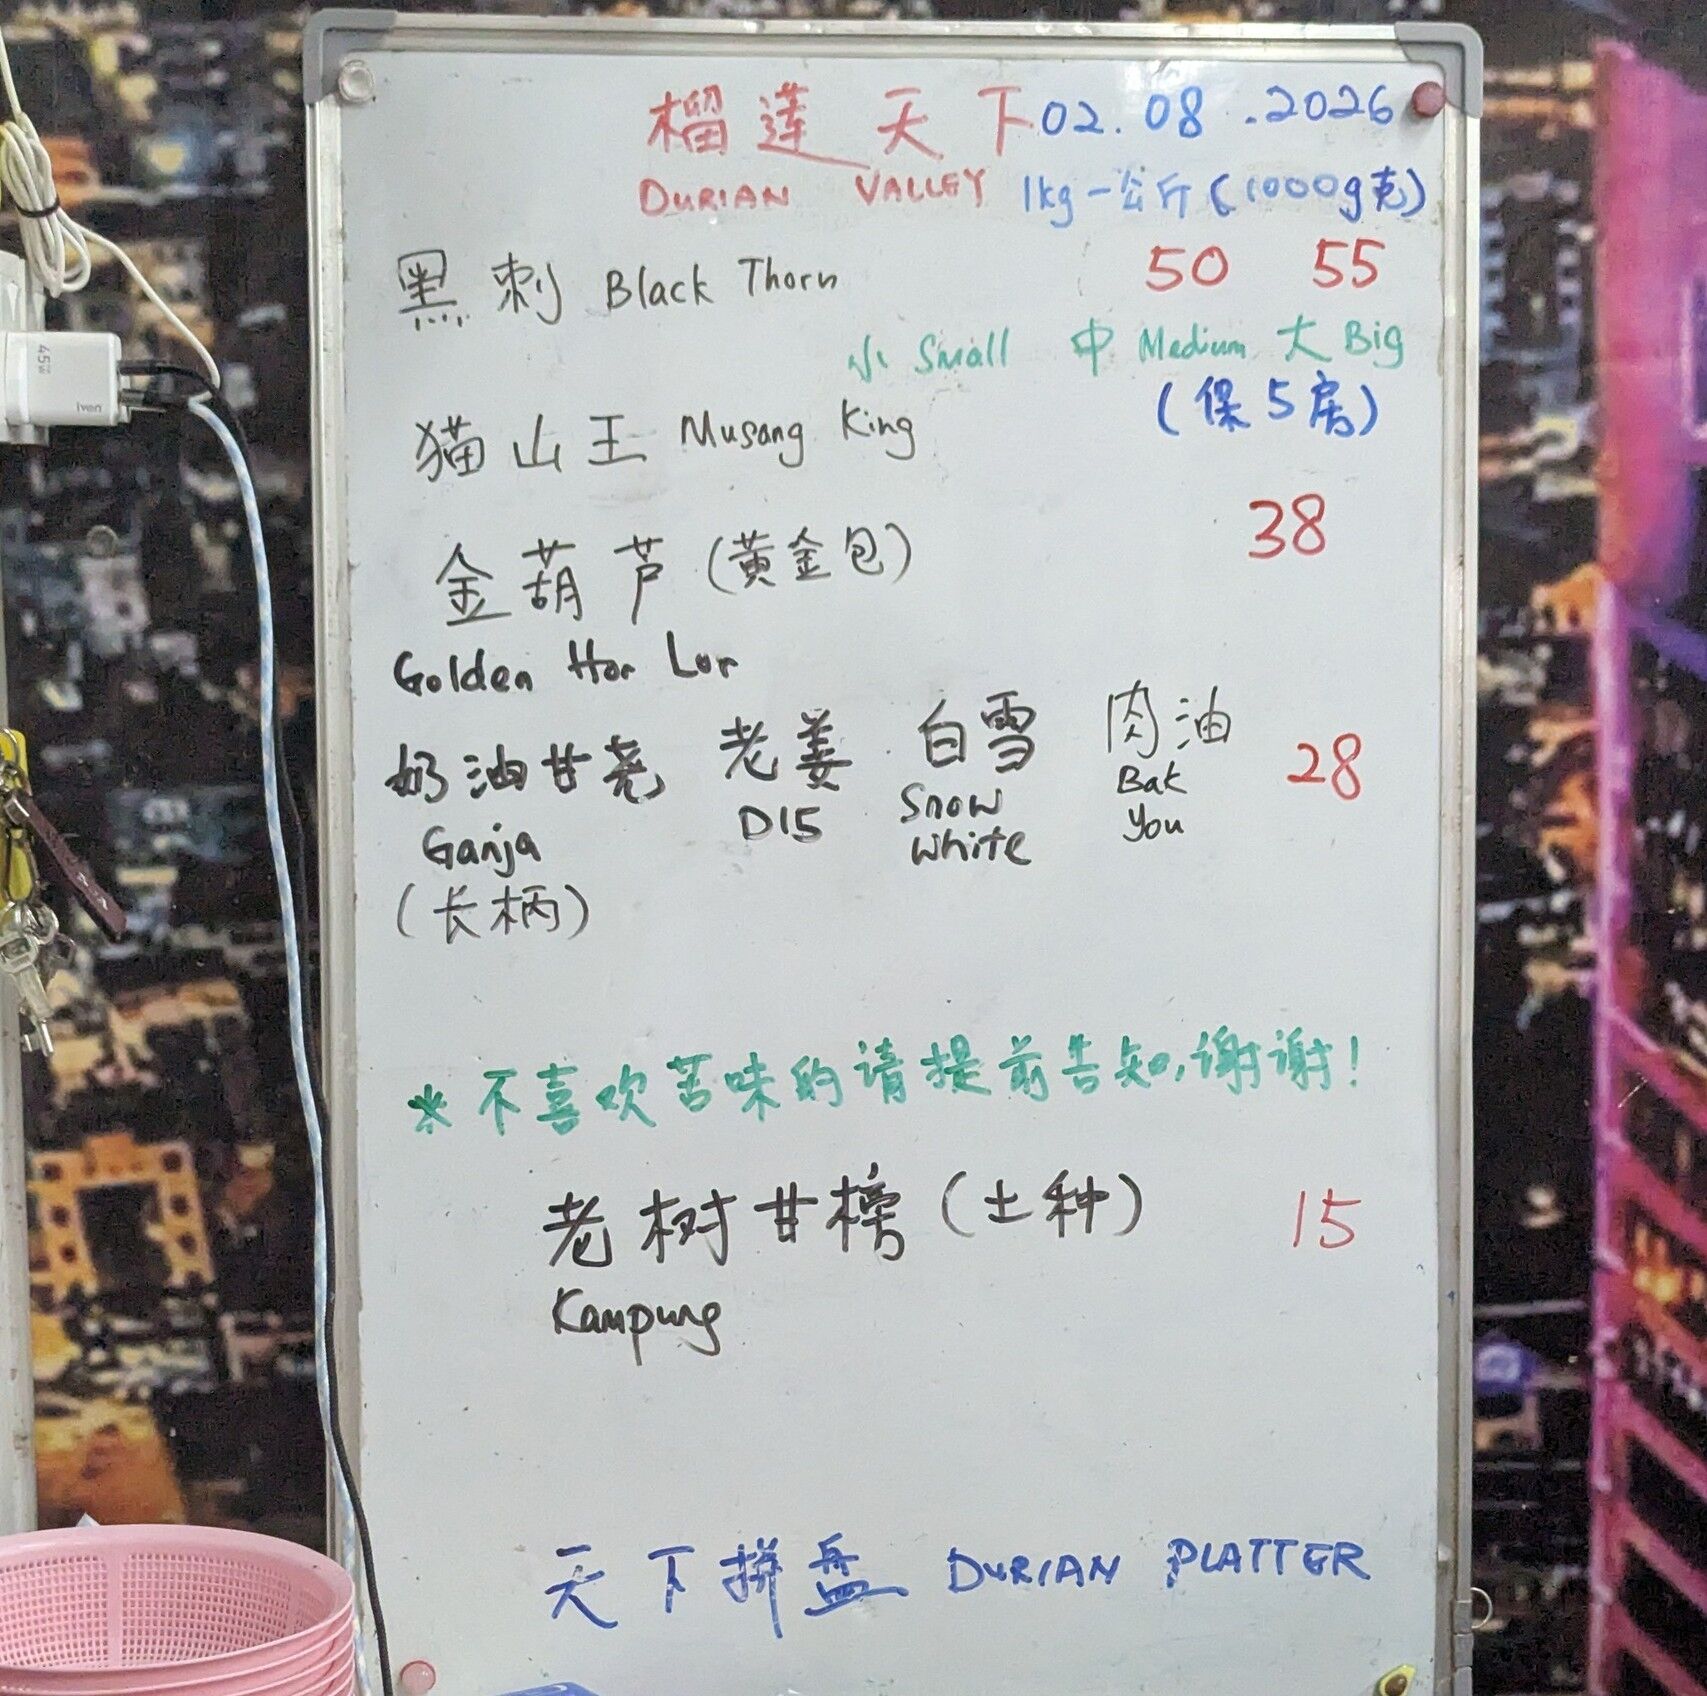 榴莲天下 02.08.2026
DURIAN VALLEY 1kg一公斤(1000g克)
黑刺 Black Thorn 50 55
小 Small 中 Medium 大 Big
猫山王 Musang King (保5房)
金葫芦(黄金包) 38
Golden Hor Lor
奶油甘尧 老姜 白雪 肉油 28
Ganja D15 Snow White Bak You
(长柄)
* 不喜欢苦味的请提前告知,谢谢!
老树甘榜(土种) 15
Kampung
天下拼盘 DURIAN PLATTER
45W